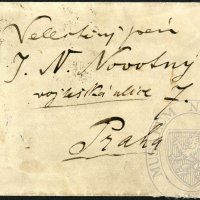 Velectěný pán
J. N. Novotny
vojtěšská ulice 7.
Praha